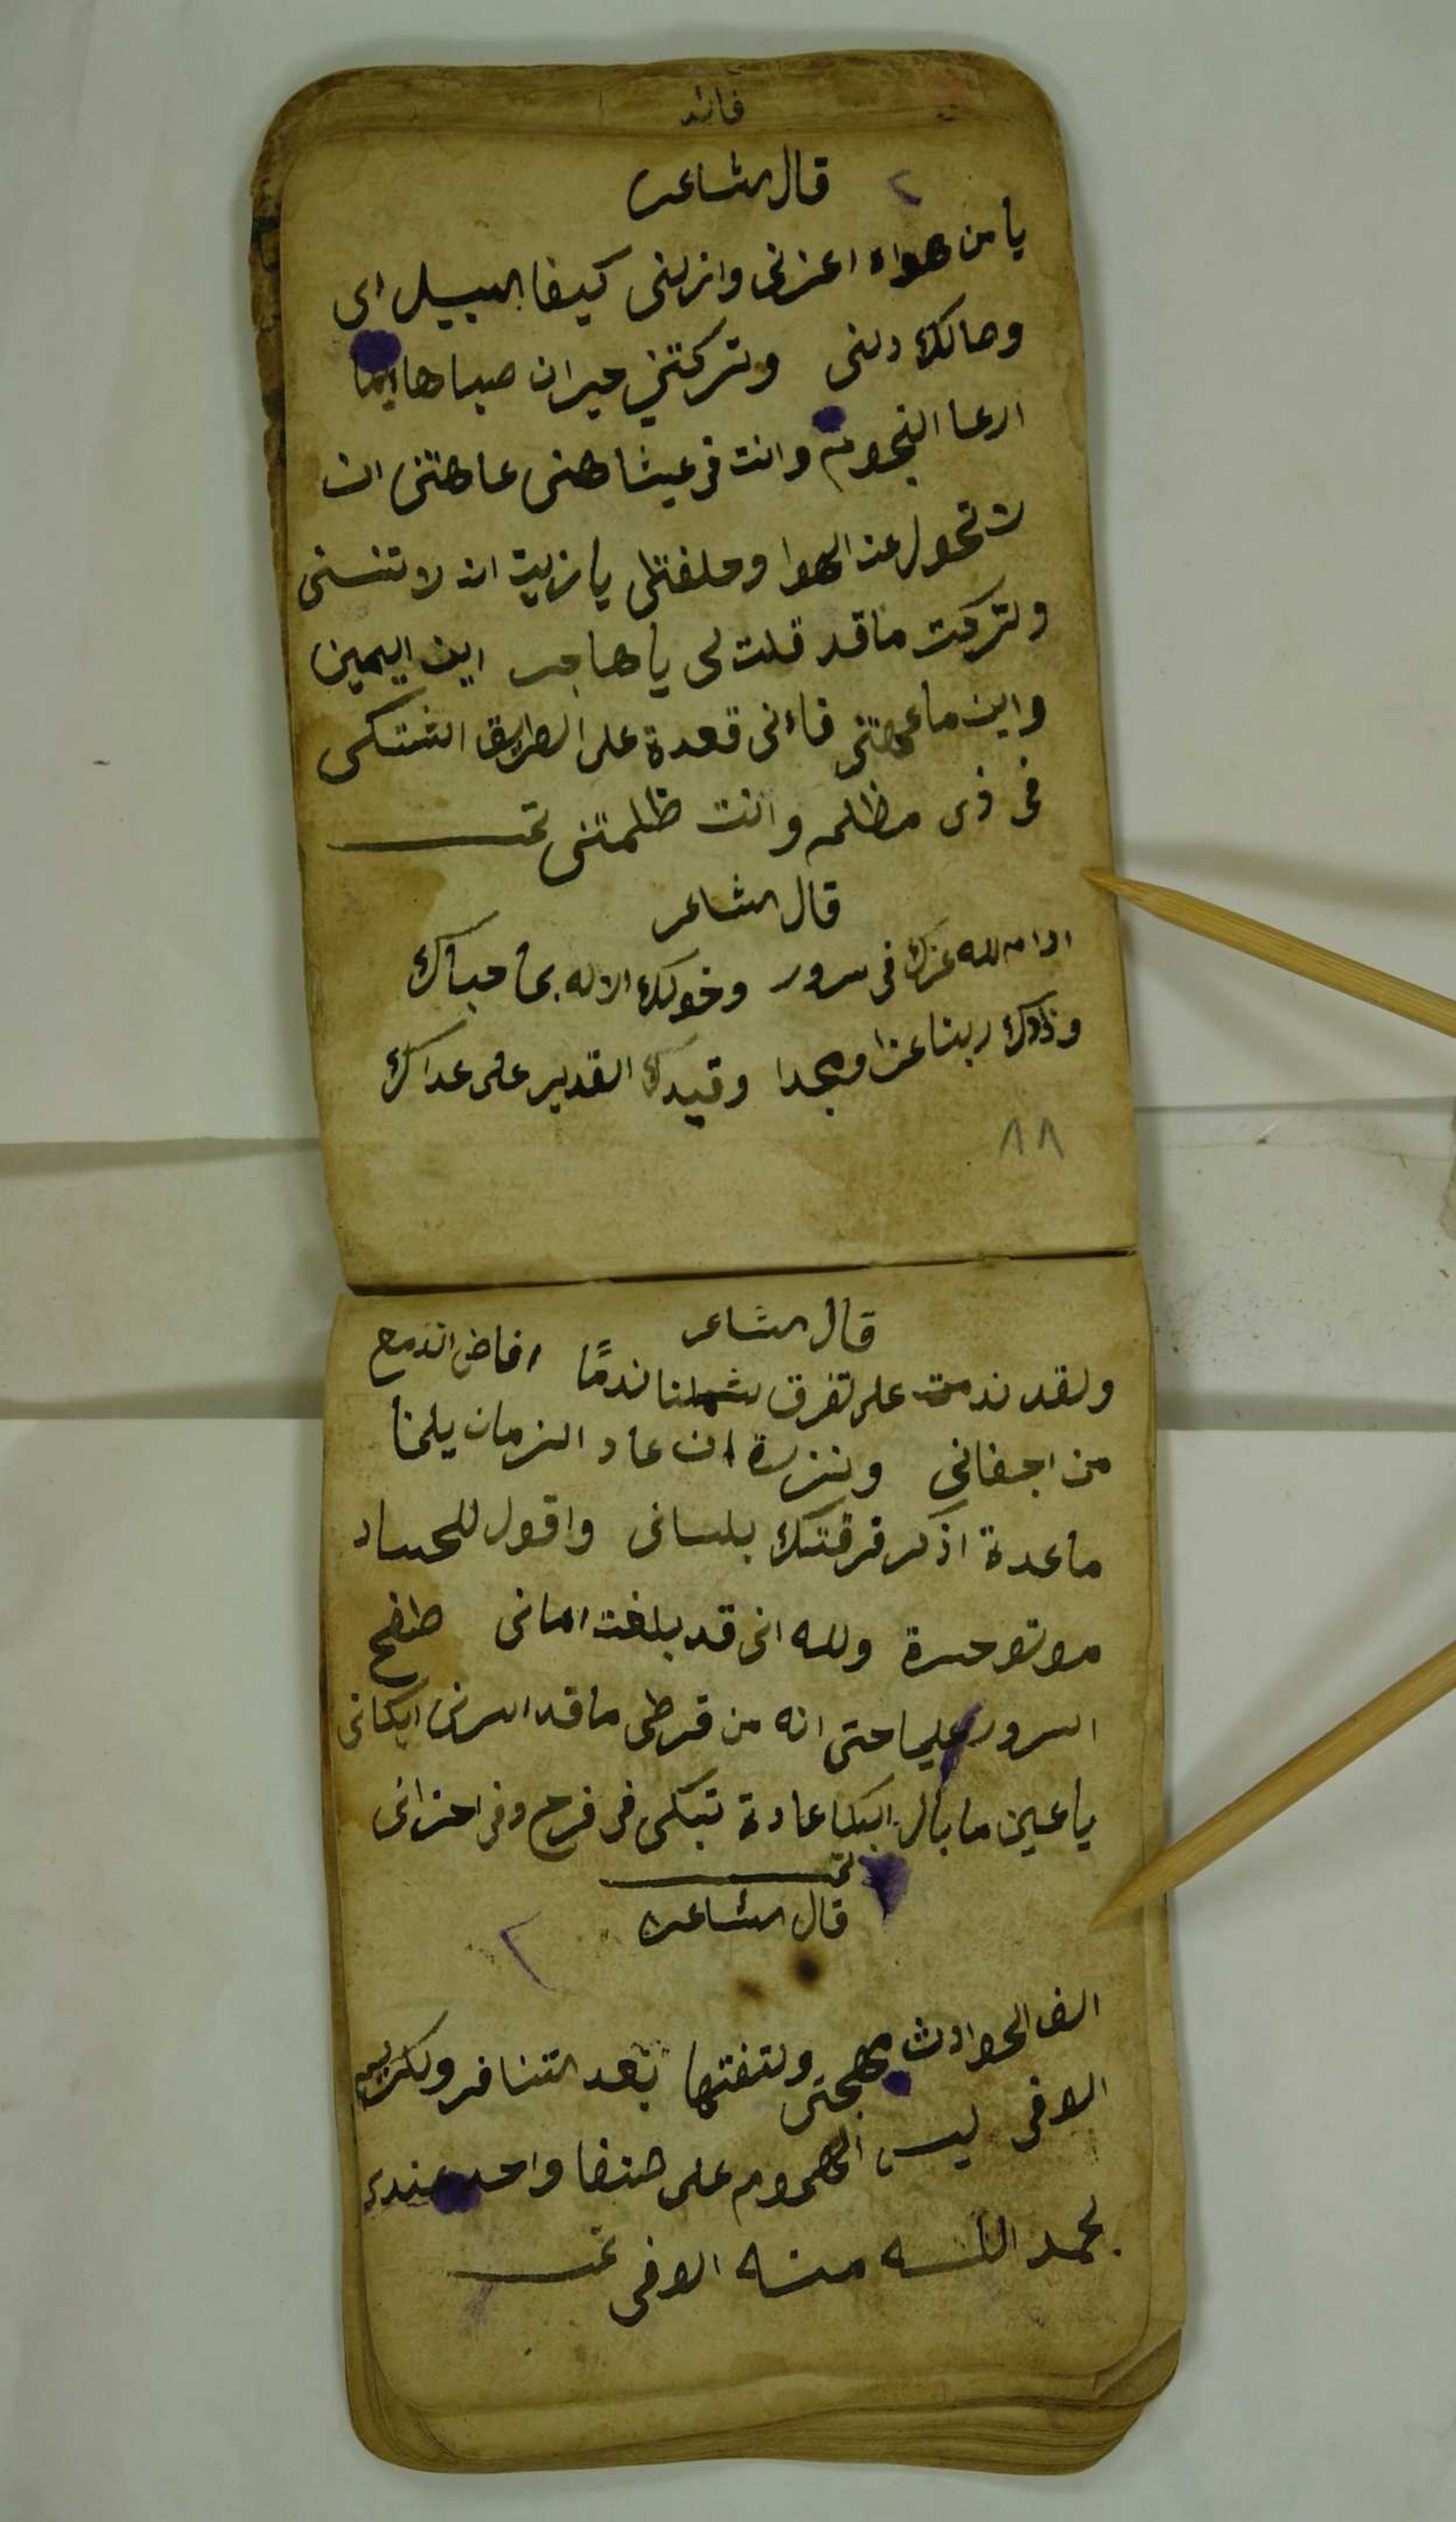 فائد
قال الشاعر
يا من هواه اعزنى واذلنى كيفا السبيل اى
وصالك دلنى وتركتني حيران صبا هايما
ارعا النجوم وانت فى عيشا هنى عاهتنى ان
لا تحول عن الهوا وحلفتلى يا زين ان لا تنسنى
وتركت ما قد قلت لى يا هاجر اين اليمين
واين ما عهتنى فاءنى قعدة على الطريق اشتكى
فى ذى مظلمه وانت ظلمتنى تمت
قال الشاعر
ادام لله عزك فى سرور وخولك الاله بما حباك
وذادك ربنا عزا ومجدا وقيدك القدير على عداك
٨٨
قال الشاعر
ولقد ندمت على تفرق شملنا ندمًا افاض الدمع
من اجفانى ونزرة ان عاد الزمان يلمنا
ما عدة اذكر فرقتك بلسانى واقول للحساد
موتو حسرة ولله انى قد بلغت امانى طفح
السرور عليا حتى انه من فرطى ما قد اسرنى ابكانى
يا عين ما بال البكا عادة تبكى فى فرح وفى احزانى
تمت
قال الشاعر
الف الحوادث مهجتى ولتفتها بعد التنافر ولكريم
الوفى ليس الهموم على صنفا واحد عندى
بحمد الله منه الوفى تمت